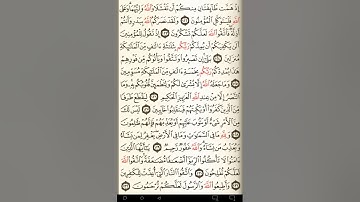 إِذْ هَمَّت طَّآئِفَتَانِ مِنكُمْ أَن تَفْشَلَا وَٱللَّهُ وَلِيُّهُمَا وَعَلَى
ٱللَّهِ فَلْيَتَوَكَّلِ ٱلْمُؤْمِنُونَ ١٢٢ وَلَقَدْ نَصَرَكُمُ ٱللَّهُ بِبَدْرٍ وَأَنتُمْ
أَذِلَّةٌ فَٱتَّقُوا۟ ٱللَّهَ لَعَلَّكُمْ تَشْكُرُونَ ١٢٣ إِذْ تَقُولُ لِلْمُؤْمِنِينَ
أَلَن يَكْفِيَكُمْ أَن يُمِدَّكُمْ رَبُّكُم بِثَلَٰثَةِ ءَالَٰفٍ مِّنَ ٱلْمَلَٰٓئِكَةِ
مُنزَلِينَ ١٢٤ بَلَىٰٓ إِن تَصْبِرُوا۟ وَتَتَّقُوا۟ وَيَأْتُوكُم مِّن فَوْرِهِمْ
هَٰذَا يُمْدِدْكُمْ رَبُّكُم بِخَمْسَةِ ءَالَٰفٍ مِّنَ ٱلْمَلَٰٓئِكَةِ مُسَوِّمِينَ
١٢٥ وَمَا جَعَلَهُ ٱللَّهُ إِلَّا بُشْرَىٰ لَكُمْ وَلِتَطْمَئِنَّ قُلُوبُكُم بِهِۦ وَمَا
ٱلنَّصْرُ إِلَّا مِنْ عِندِ ٱللَّهِ ٱلْعَزِيزِ ٱلْحَكِيمِ ١٢٦ لِيَقْطَعَ طَرَفًا
مِّنَ ٱلَّذِينَ كَفَرُوٓا۟ أَوْ يَكْبِتَهُمْ فَيَنقَلِبُوا۟ خَآئِبِينَ ١٢٧ لَيْسَ لَكَ
مِنَ ٱلْأَمْرِ شَىْءٌ أَوْ يَتُوبَ عَلَيْهِمْ أَوْ يُعَذِّبَهُمْ فَإِنَّهُمْ ظَٰلِمُونَ
١٢٨ وَلِلَّهِ مَا فِى ٱلسَّمَٰوَٰتِ وَمَا فِى ٱلْأَرْضِ يَغْفِرُ لِمَن يَشَآءُ
وَيُعَذِّبُ مَن يَشَآءُ وَٱللَّهُ غَفُورٌ رَّحِيمٌ ١٢٩ يَٰٓأَيُّهَا ٱلَّذِينَ
ءَامَنُوا۟ لَا تَأْكُلُوا۟ ٱلرِّبَوٰٓا۟ أَضْعَٰفًا مُّضَٰعَفَةً وَٱتَّقُوا۟ ٱللَّهَ
لَعَلَّكُمْ تُفْلِحُونَ ١٣٠ وَٱتَّقُوا۟ ٱلنَّارَ ٱلَّتِىٓ أُعِدَّتْ لِلْكَٰفِرِينَ
١٣١ وَأَطِيعُوا۟ ٱللَّهَ وَٱلرَّسُولَ لَعَلَّكُمْ تُرْحَمُونَ ١٣٢